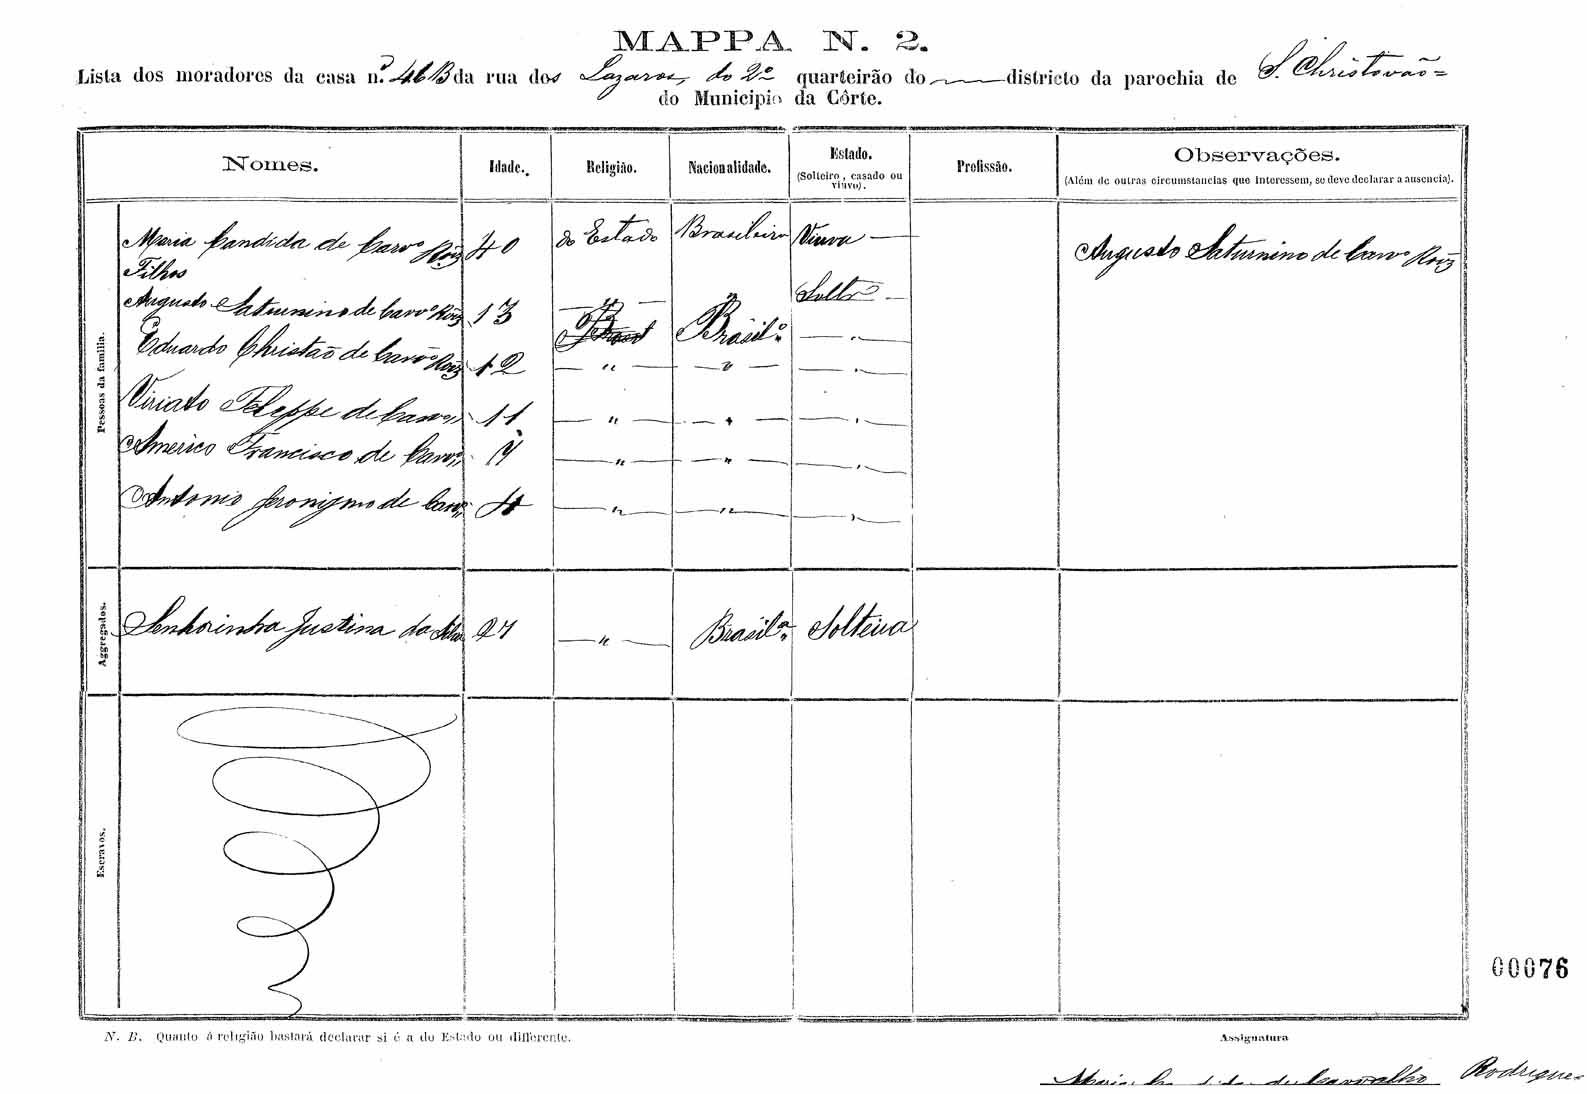 MAPPA N. 2.
Lista dos moradores da casa nº. 46 B da rua dos Lazaros, do 2º quarteirão do districto da parochia de S. Christovão =
do Municipio da Côrte.
Nomes. Idade. Religião. Nacionalidade. Estado. Profissão. Observações.
(Solteiro, casado ou viuvo). (Além de outras circumstancias que interessem, se deve declarar a ausencia).
Pessoas da familia.
Maria Candida de Carvº Roiz 40 do Estado Brasileira Viuva — Augusto Saturnino de Carvº Roiz
Filhos
Augusto Saturnino de Carvº Roiz 13 — " — " Soltº —
Brasil Brasilº — " —
Eduardo Christão de Carvº Roiz 12 — " — — " — — " —
Viriato Felippe de Carvº " 11 — " — — " — — " —
Americo Francisco de Carvº " 7 — " — — " — — " —
Antonio Jeronymo de Carvº " 4 — " — — " — — " —
Aggregados.
Senhorinha Justina da Silva 27 — " — Brasilª Solteira
Escravos.
00076
N. B. Quanto á religião bastará declarar si é a do Estado ou differente.
Assignatura
Maria Candida de Carvalho Rodrigues